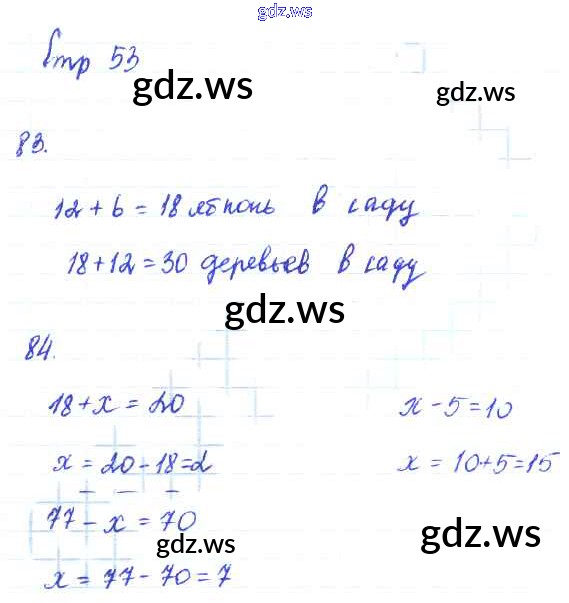 gdz.ws
Стр 53
gdz.ws
gdz.ws
83.
12 + 6 = 18 яблонь в саду
18 + 12 = 30 деревьев в саду
gdz.ws
84.
18 + х = 20
х - 5 = 10
х = 20 - 18 = 2
х = 10 + 5 = 15
77 - х = 70
gdz.ws
gdz.ws
х = 77 - 70 = 7